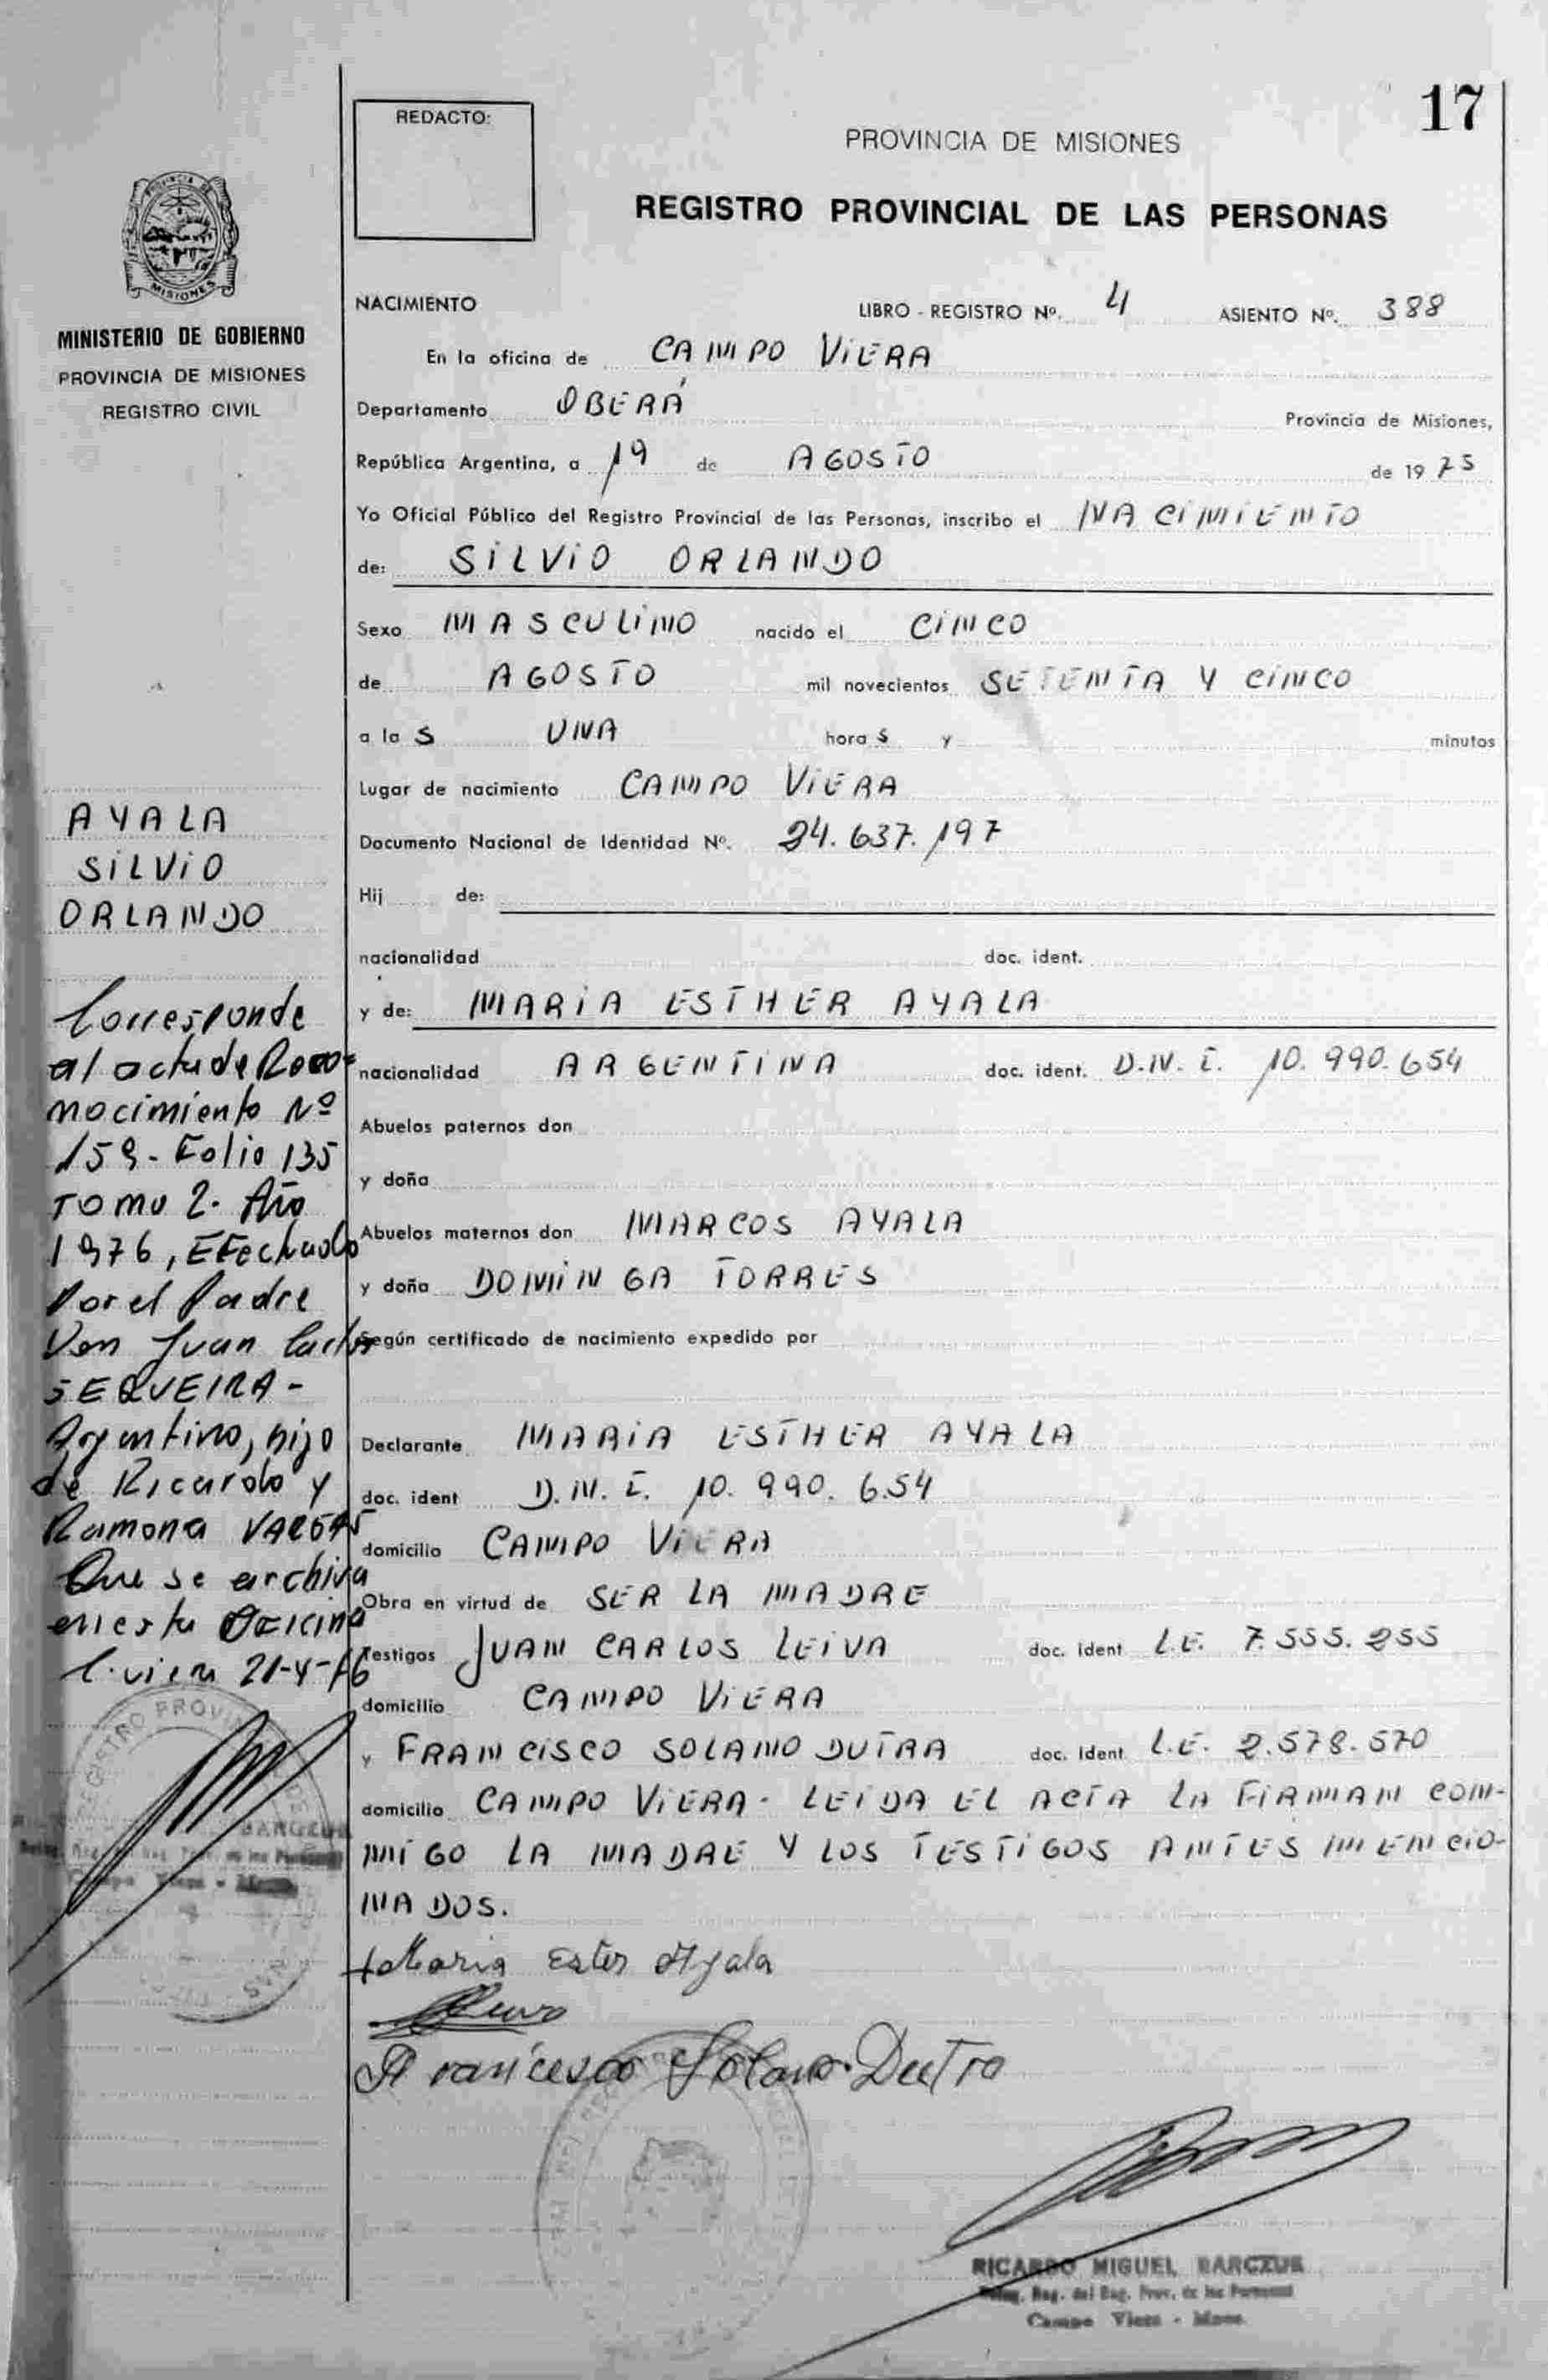 17
REDACTO:
PROVINCIA DE MISIONES
REGISTRO PROVINCIAL DE LAS PERSONAS
MISIONES
MINISTERIO DE GOBIERNO
PROVINCIA DE MISIONES
REGISTRO CIVIL
NACIMIENTO LIBRO - REGISTRO Nº. 4 ASIENTO Nº. 388
En la oficina de CAMPO VIERA
Departamento OBERÁ Provincia de Misiones,
República Argentina, a 19 de AGOSTO de 1975
Yo Oficial Público del Registro Provincial de las Personas, inscribo el NACIMIENTO
de: SILVIO ORLANDO
Sexo MASCULINO nacido el CINCO
de AGOSTO mil novecientos SETENTA Y CINCO
a las UNA horas y minutos
Lugar de nacimiento CAMPO VIERA
Documento Nacional de Identidad Nº. 24.637.197
Hij de:
nacionalidad doc. ident.
y de: MARIA ESTHER AYALA
nacionalidad ARGENTINA doc. ident. D.N.I. 10.990.654
Abuelos paternos don
y doña
Abuelos maternos don MARCOS AYALA
y doña DOMINGA TORRES
Según certificado de nacimiento expedido por
Declarante MARIA ESTHER AYALA
doc. ident D.N.I. 10.990.654
domicilio CAMPO VIERA
Obra en virtud de SER LA MADRE
Testigos JUAN CARLOS LEIVA doc. ident L.E. 7.555.255
domicilio CAMPO VIERA
y FRANCISCO SOLANO DUTRA doc. ident L.E. 2.578.570
domicilio CAMPO VIERA - LEIDA EL ACTA LA FIRMAN CON-
MIGO LA MADRE Y LOS TESTIGOS ANTES MENCIO-
NADOS.
Maria Ester Ayala
Francisco Solano Dutra
RICARDO MIGUEL BARCZUK
Deleg. Reg. del Reg. Prov. de las Personas
Campo Viera - Mnes.
AYALA
SILVIO
ORLANDO
Corresponde
al acta de Reco=
nocimiento Nº
159 - Folio 135
Tomo 2. Año
1976, Efectuado
Por el Padre
Don Juan Carlos
SEQUEIRA -
Argentino, hijo
de Ricardo y
Ramona VARGAS
Que se archiva
en esta Oficina
C. viera 21-4-76
REGISTRO PROVIN